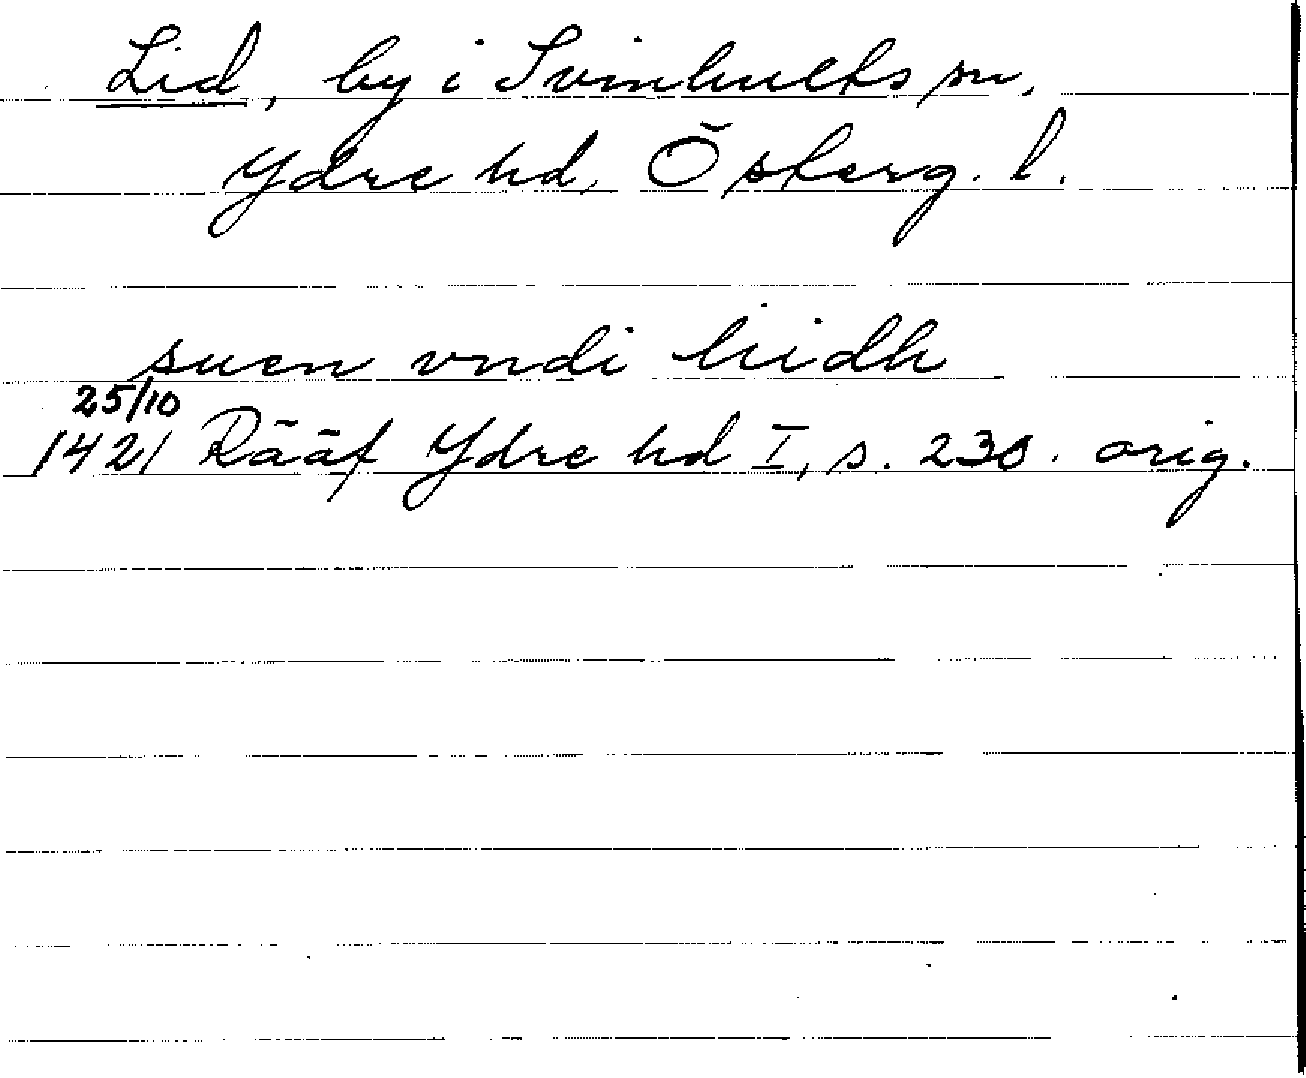 Lid, by i Svinhults sn,
Ydre hd, Österg. l.
suen vndi liidh
25/10
1421 Rääf Ydre hd I, s. 230. orig.